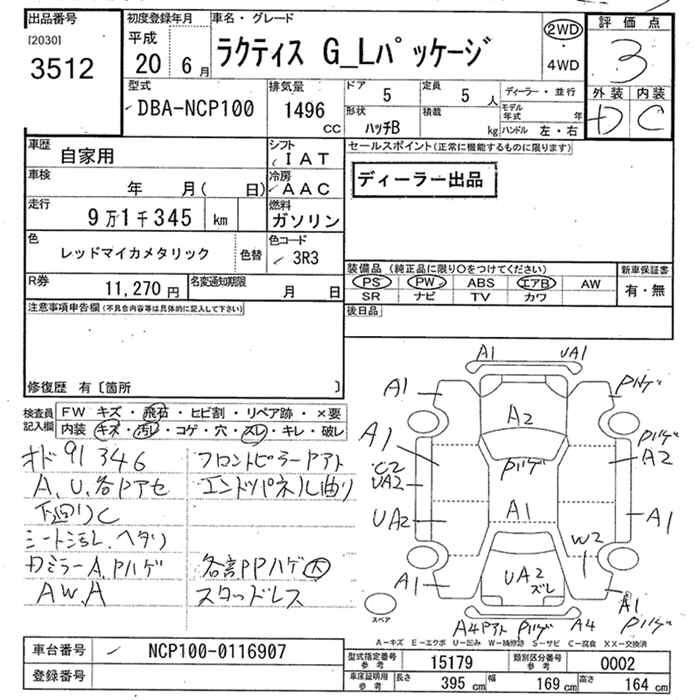 出品番号
[2030]
3512
初度登録年月
平成
20 6月
車名・グレード
ラクティス G_Lパッケージ
2WD
4WD
評価点
3
外装 内装
D C
型式
DBA-NCP100
排気量
1496
CC
ドア
5
形状
ハッチB
定員
5人
積載
kg
ディーラー・並行
モデル年式 年
ハンドル 左・右
車歴
自家用
シフト
IAT
車検
年 月( 日)
冷房
AAC
走行
9万1千345 km
燃料
ガソリン
色
レッドマイカメタリック
色替
色コード
3R3
R券
11,270円
名変通知期限
月 日
セールスポイント(正常に機能するものに限ります)
ディーラー出品
装備品(純正品に限り○をつけてください)
PS PW ABS エアB AW
SR ナビ TV カワ
新車保証書
有・無
後日品
注意事項申告欄(不具合内容等は具体的に記入して下さい)
修復歴 有〔箇所 〕
検査員記入欄
FW キズ・飛石・ヒビ割・リペア跡・×要
内装 キズ・汚レ・コゲ・穴・スレ・キレ・破レ
オド91346
A、U、各Pアセ
下回りC
シートヨゴレ、ヘタリ
カミラーA、Pハゲ
AW、A
フロントピラーPアト
エンドツパネル曲り
各部PPハゲ大
スタッドレス
A1 UA1
A1 Pハゲ
A2
A1 Pハゲ Pハゲ
A2
C2
UA2
UA2 A1 A1
W2
A1 UA2
ズレ
A1
Pハゲ
スペア
A4Pアト Pハゲ A4
A-キズ E-エクボ U-凹み W-補修跡 S-サビ C-腐食 XX-交換済
車台番号
NCP100-0116907
登録番号
型式指定番号
参考
15179
類別区分番号
参考
0002
車庫証明用
参考
長さ
395 cm
幅
169 cm
高さ
164 cm